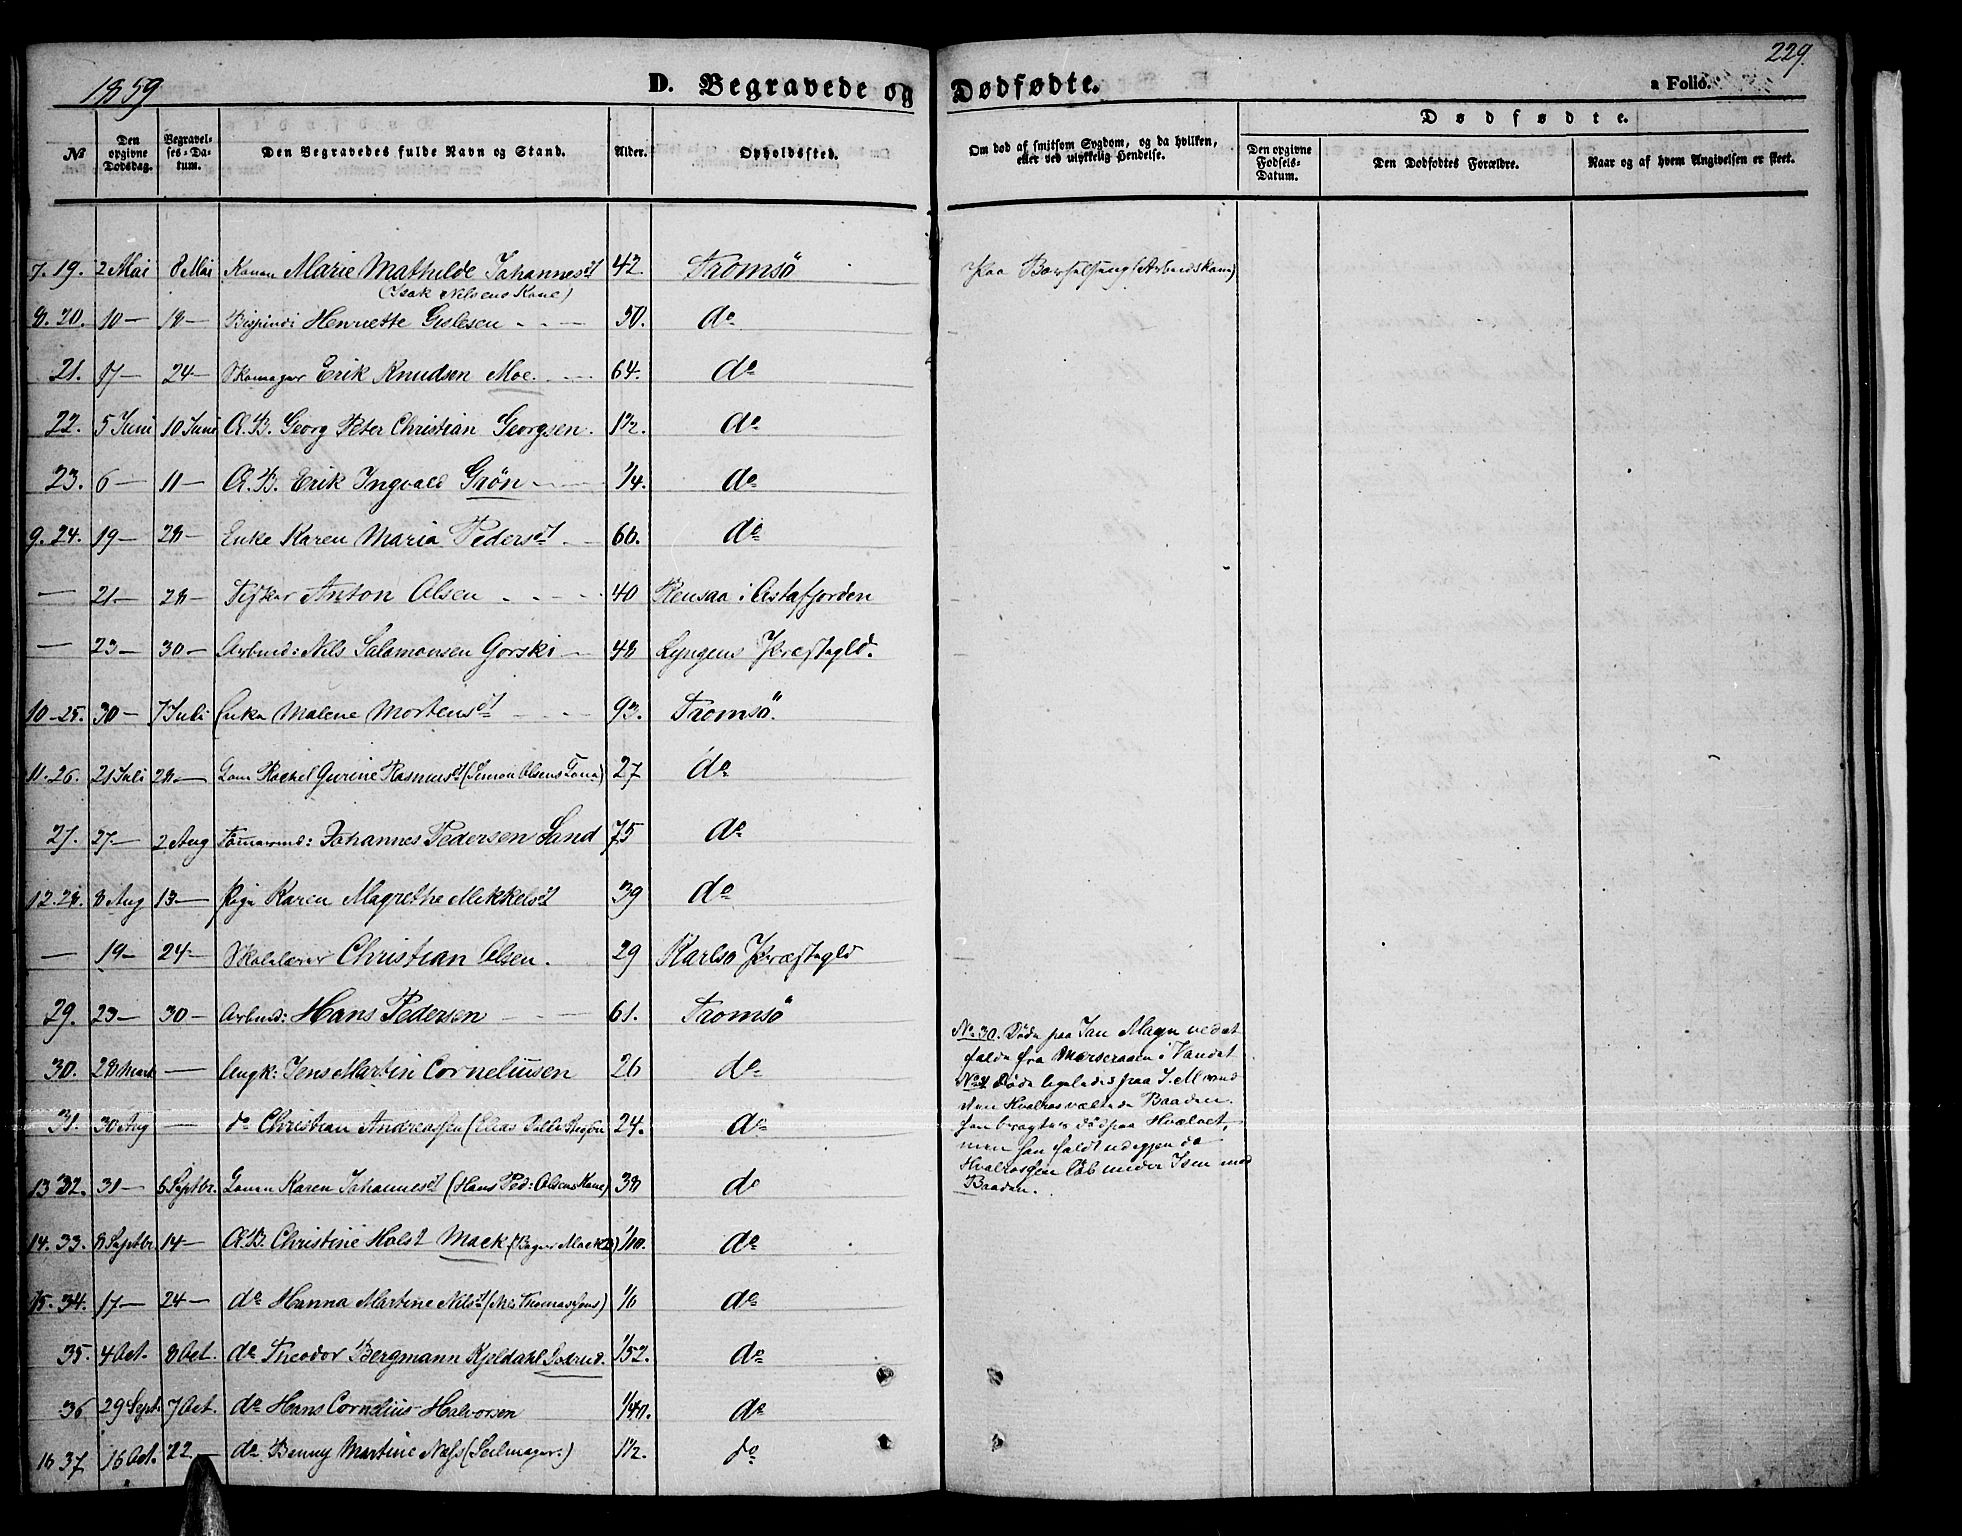 1859
D. Begravede og Dødfødte.
229
a Folio.
No
Den opgivne Dødsdag.
Begravelses-Datum.
Den Begravedes fulde Navn og Stand.
Alder.
Opholdssted.
Om død af smitsom Sygdom, og da hvilken, eller ved ulykkelig Hendelse.
Dødfødte.
Den opgivne Fødsels-Datum.
Den Dødfødtes Forældre.
Naar og af hvem Angivelsen er skeet.
7. 19. 2 Mai 8 Mai Konen Marie Mathilde Johannesdt 42. Tromsö Paa Barselseng
(Isak Nilsens Kone)
8. 20. 10 — 18 — Henriette Gislesen 50. do
21. 17 — 24 — Skomager Erik Knudsen Moe. 64. do
22. 5 Juni 10 Juni Æ. B. Georg Peter Christian Georgsen. 1/2. do
23. 6 — 11 — Æ. B. Erik Ingvald Grön 1/4. do
9. 24. 19 — 28 — Enke Karen Maria Pedersdt 66. do
— 21 — 28 — Fisker Anton Olsen 40 Rensaa i Astafjorden
— 23 — 30 — Arbmd: Nils Salamonsen Gorski 48 Lyngens Præstegld.
10. 25. 30 — 7 Juli Enke Malene Mortensdt 93. Tromsö
11. 26. 21 Juli 28 — Rachel Gurine Rasmusdt (Simon Olsens Kone) 27 do
27. 27 — 2 Aug Johannes Pedersen Sand 75 do
12. 28. 8 Aug 13 — Pige Karen Magrethe Mikkelsdt 39 do
— 19 — 24 — Skolelærer Christian Olsen. 29 Karlsö Præstegld
29. 23 — 30 — Arbmd: Hans Pedersen 61. Tromsö
30. 28 Mart — Ungk: Jens Martin Corneliusen 26 do
31. 30 Aug — do Christian Andreassen (Elias 24. do
13 32. 31 — 6 Septbr. Konen Karen Johannesdt (Hans Ped: Olsens Kone) 38 do
14. 33. 8 Septbr 14 — Æ. B. Christine Holst Mack (Bager Macks) 1/10. do
15. 34. 17 — 24 — do Hanna Martine Nilsdt (Nils Thomassens) 1/6 do
35. 4 Oct. 8 Oct. do Theodor Bergmann Kjeldahl 1/52. do
36 29 Sept. 7 Oct. do Hans Cornelius Halvorsen do
16 37 16 Oct. 22 — do Benny Martine Næss (Seilmager:) 1/2. do
No. 30. Döde paa Jan Mayn ved at
falde fra Merseraaen i Vandet
Döde ligeledes paa J. M. ved
den Hvalros væltede Baaden.
han bragtes död paa Hvalret,
men han faldt ud igjen da
Hvalrossen löb under Isen med
Baaden.